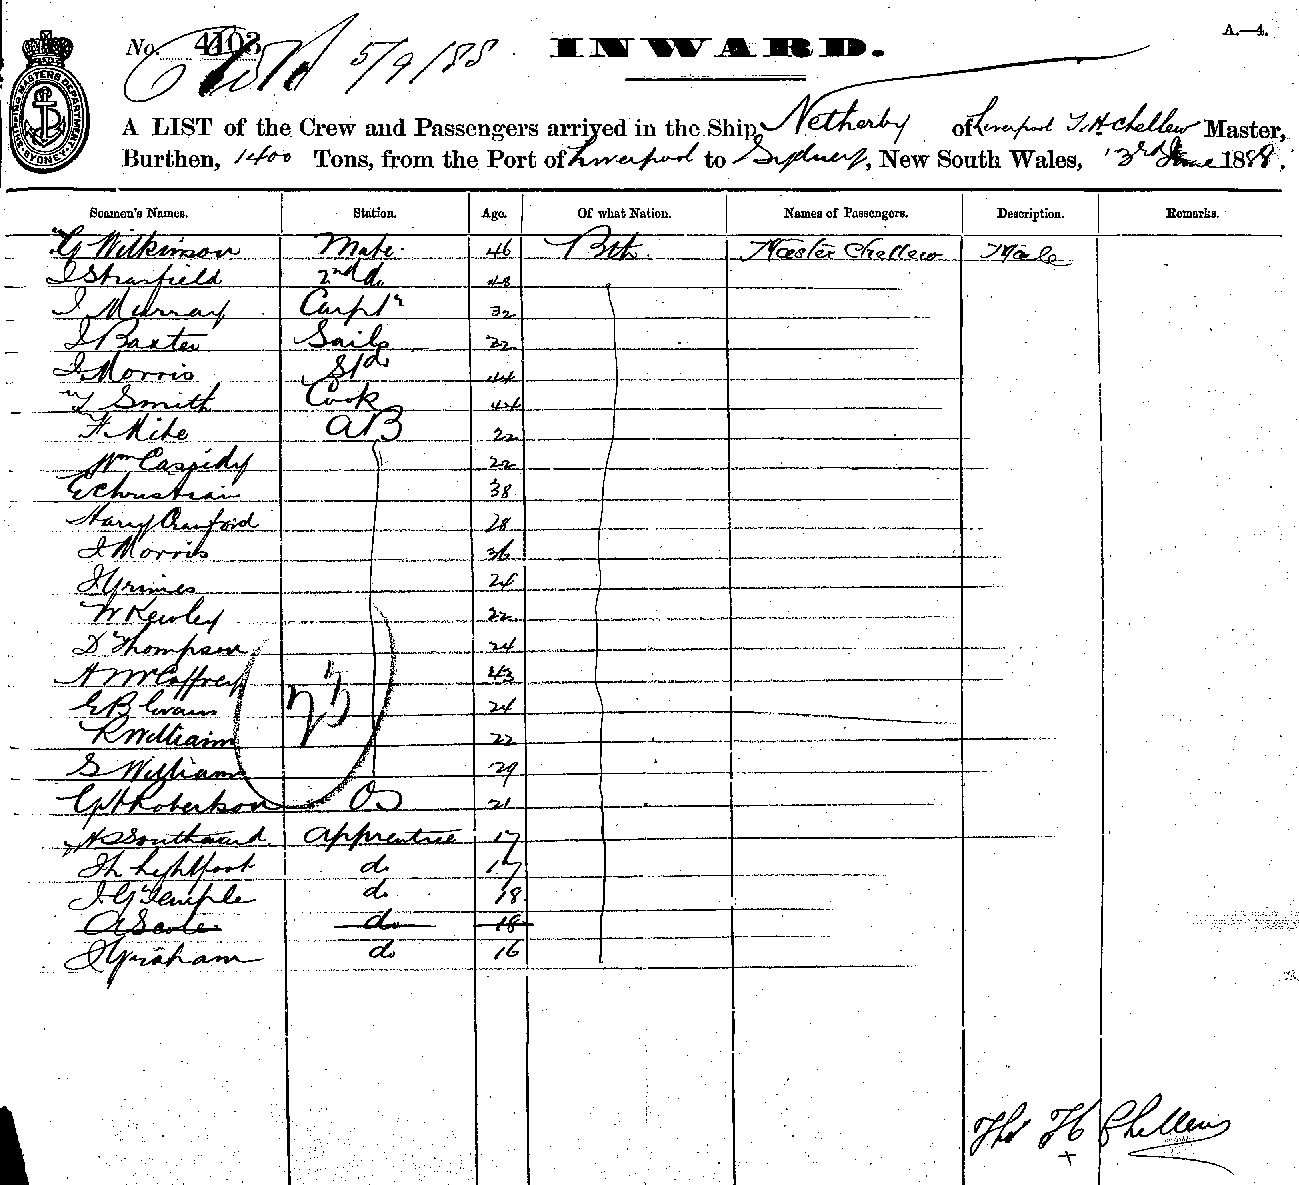 A.—4.
No. 4103 5/9/88 INWARD.
A LIST of the Crew and Passengers arrived in the Ship, Netherby of Liverpool T. H. Chellew Master,
Burthen, 1400 Tons, from the Port of Liverpool to Sydney, New South Wales, 3rd June 1888.
Seamen's Names. Station. Age. Of what Nation. Names of Passengers. Description. Remarks.
G Wilkinson Mate 46 Brit. Master Chellew Male
J Stranfield 2nd do 48
J Murray Carptr 32
J Baxter Sails 22
J Morris Std 44
T Smith Cook 44
F. Mike AB 22
Wm Cassidy 22
E Christian 38
Harry Cranford 28
J Morris 36
J Grimes 24
W Kewley 22
D Thompson 24
A McCaffrey 43
E B Evans 24
R William 22
S William 29
G H Robertson OS 21
H S Southward Apprentice 17
Th Lightfoot do 17
J G Temple do 18
do 18
J Graham do 16
23
Thos H Chellew
x